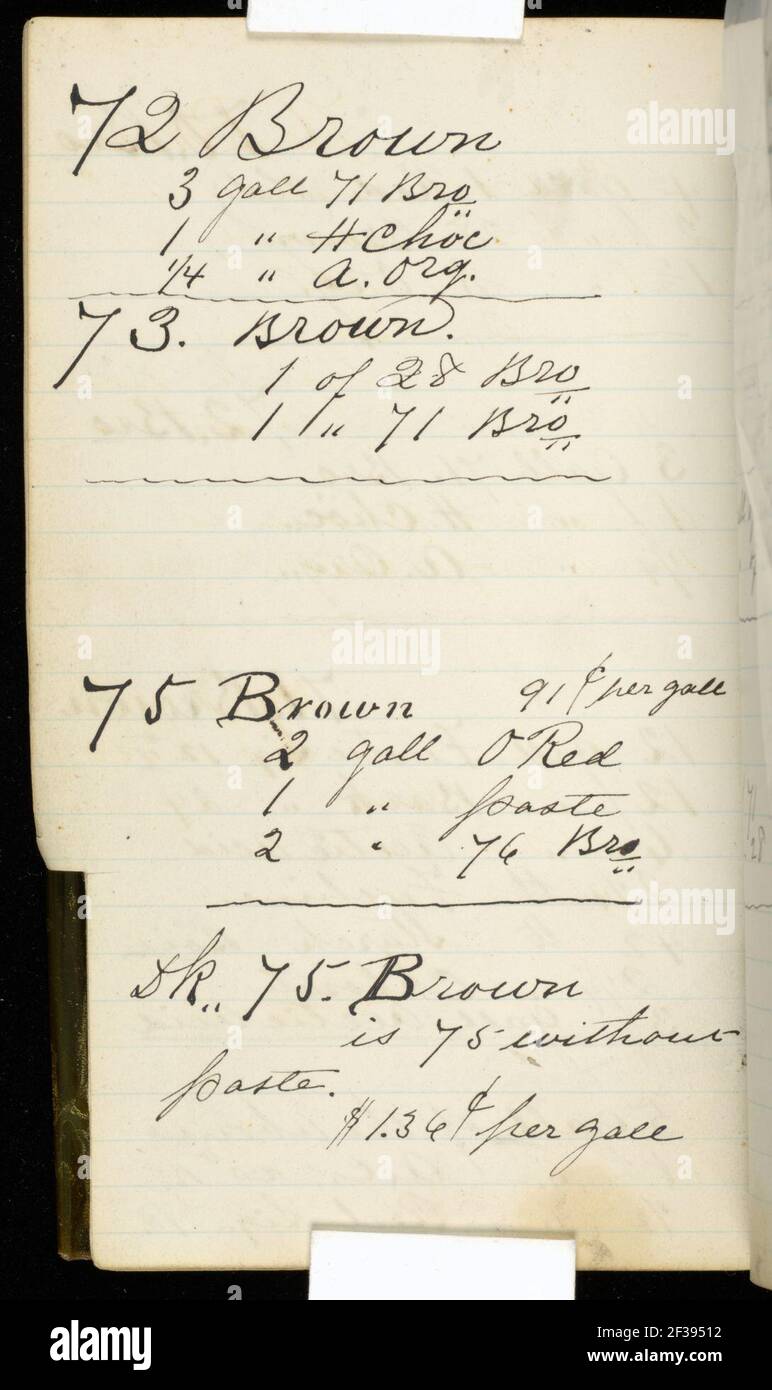 72 Brown
3 gall 71 Bro
1 " H Choc
1/4 " A. Org.
73. Brown.
1 of 28 Bro
1 " 71 Bro
75 Brown 91¢ per gall
2 gall O Red
1 " paste
2 " 76 Bro
Dk,, 75. Brown
is 75 without
paste.
$1.36¢ per gall
alamy
alamy
Image ID: 2F39512
www.alamy.com